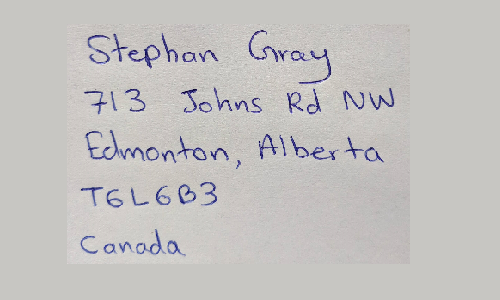 Stephan Gray
713 Johns Rd NW
Edmonton, Alberta
T6L6B3
Canada